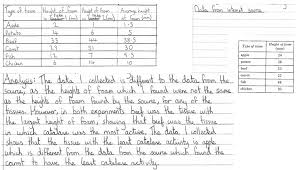 Type of tissue Height of foam Height of foam Average height
Table 1 (mm) Table 2 (mm) of foam (mm)
Apple 2 1 1.5
Potato 4 6 5
Beef 33 44 38.5
Carrot 29 31 30
Fish 6 4 5
Chicken 6 14 10
Analysis: The data I collected is different to the data from the
source, as the heights of foam which I found were not the same
as the heights of foam found by the source, for any of the
tissues. However, in both experiments beef was the tissue with
the largest height of foam, showing that beef was the tissue
in which catalase was the most active. The data I collected
shows that the tissue with the least catalase activity is apple
which is different from the data from the source which found the
carrot to have the least catalase activity.
Data from source
3
Type of tissue Height of foam (mm)
apple
potato
beef
carrot
fish
chicken